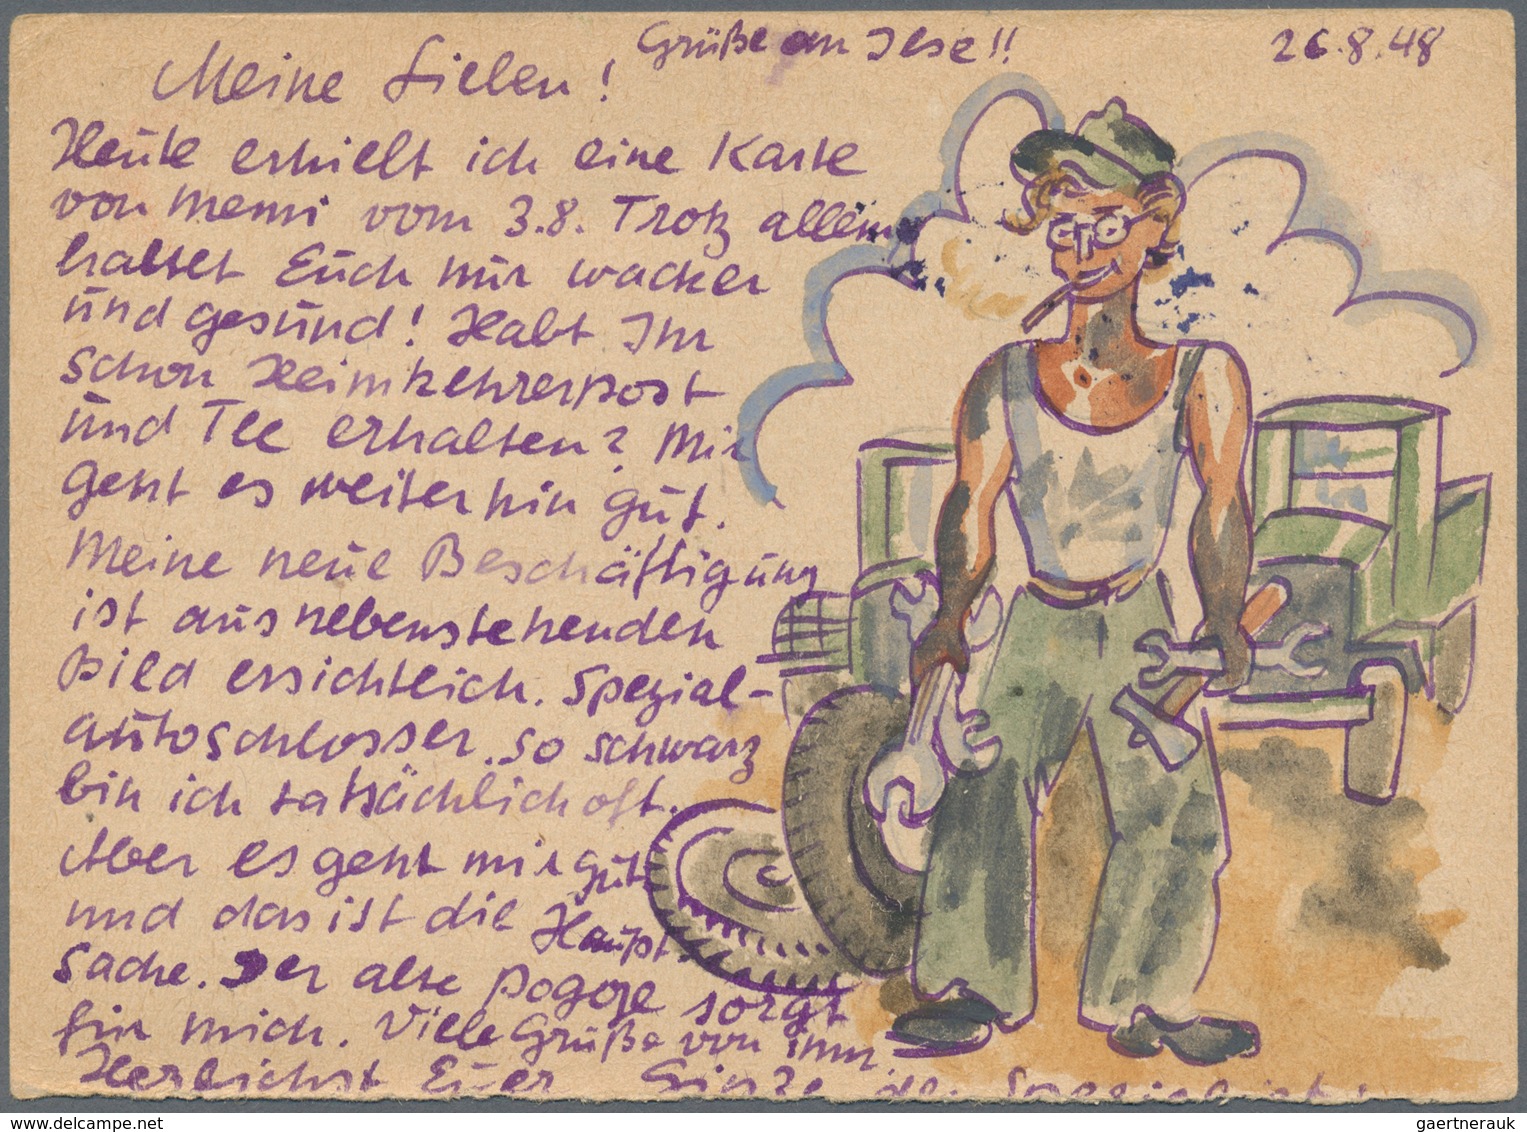 Grüße an Ilse!!
26.8.48
Meine Lieben!
Heute erhielt ich eine Karte
von Memi vom 3.8. Trotz allem
haltet Euch nur wacker
und gesund! Habt Ihr
schon Heimkehrerpost
und Tee erhalten? Mir
geht es weiterhin gut.
Meine neue Beschäftigung
ist aus nebenstehenden
Bild ersichtlich. Spezial-
autoschlosser. So schwarz
bin ich tatsächlich oft.
Aber es geht mir gut
und das ist die Haupt
sache. Der alte sorgt
für mich. Viele Grüße von ihm.
Herzlichst Euer
delcampe.net
gaertnerauk